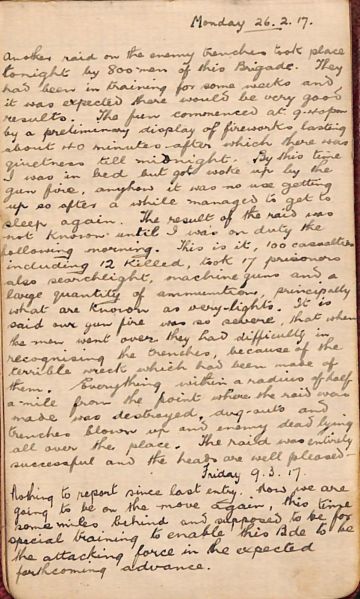 Monday 26.2.17.
Another raid on the enemy trenches took place
tonight by 800 men of this Brigade. They
had been in training for some weeks and
it was expected there would be very good
results. The fun commenced at 9.40pm
by a preliminary display of fireworks lasting
about 40 minutes after which there was
quietness till midnight. By this time
I was in bed but got woke up by the
gun fire, anyhow it was no use getting
up so after a while managed to get to
sleep again. The result of the raid was
not known until I was on duty the
following morning. This is it, 100 casualties
including 12 killed, took 17 prisoners
also searchlight, machine guns and a
large quantity of ammunition, principally
what are known as very-lights. It is
said our gun fire was so severe, that when
the men went over they had difficulty in
recognising the trenches, because of the
terrible wreck which had been made of
them. Everything within a radius of half
a mile from the point where the raid was
made was destroyed, dug-outs and
trenches blown up and enemy dead lying
all over the place. The raid was entirely
successful and the heads are well pleased—
Friday 9.3.17.
Nothing to report since last entry. Now we are
going to be on the move again, this time
some miles behind and supposed to be for
special training to enable this Bde to be
the attacking force in the expected
forthcoming advance.